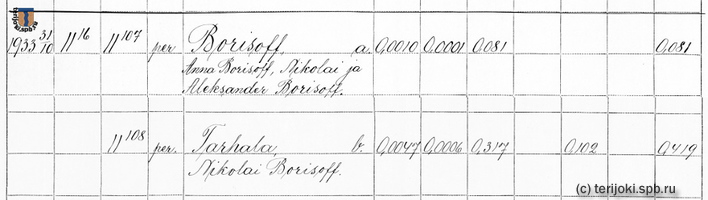 1933 31/10 11¹⁶ 11¹⁰⁷ per. Borisoff, a. 0,0010 0,0001 0,081 0,081
Anna Borisoff, Nikolai ja
Aleksander Borisoff.
11¹⁰⁸ per. Tarhala, b. 0,0047 0,0006 0,317 0,102 0,419
Nikolai Borisoff.
(c) terijoki.spb.ru